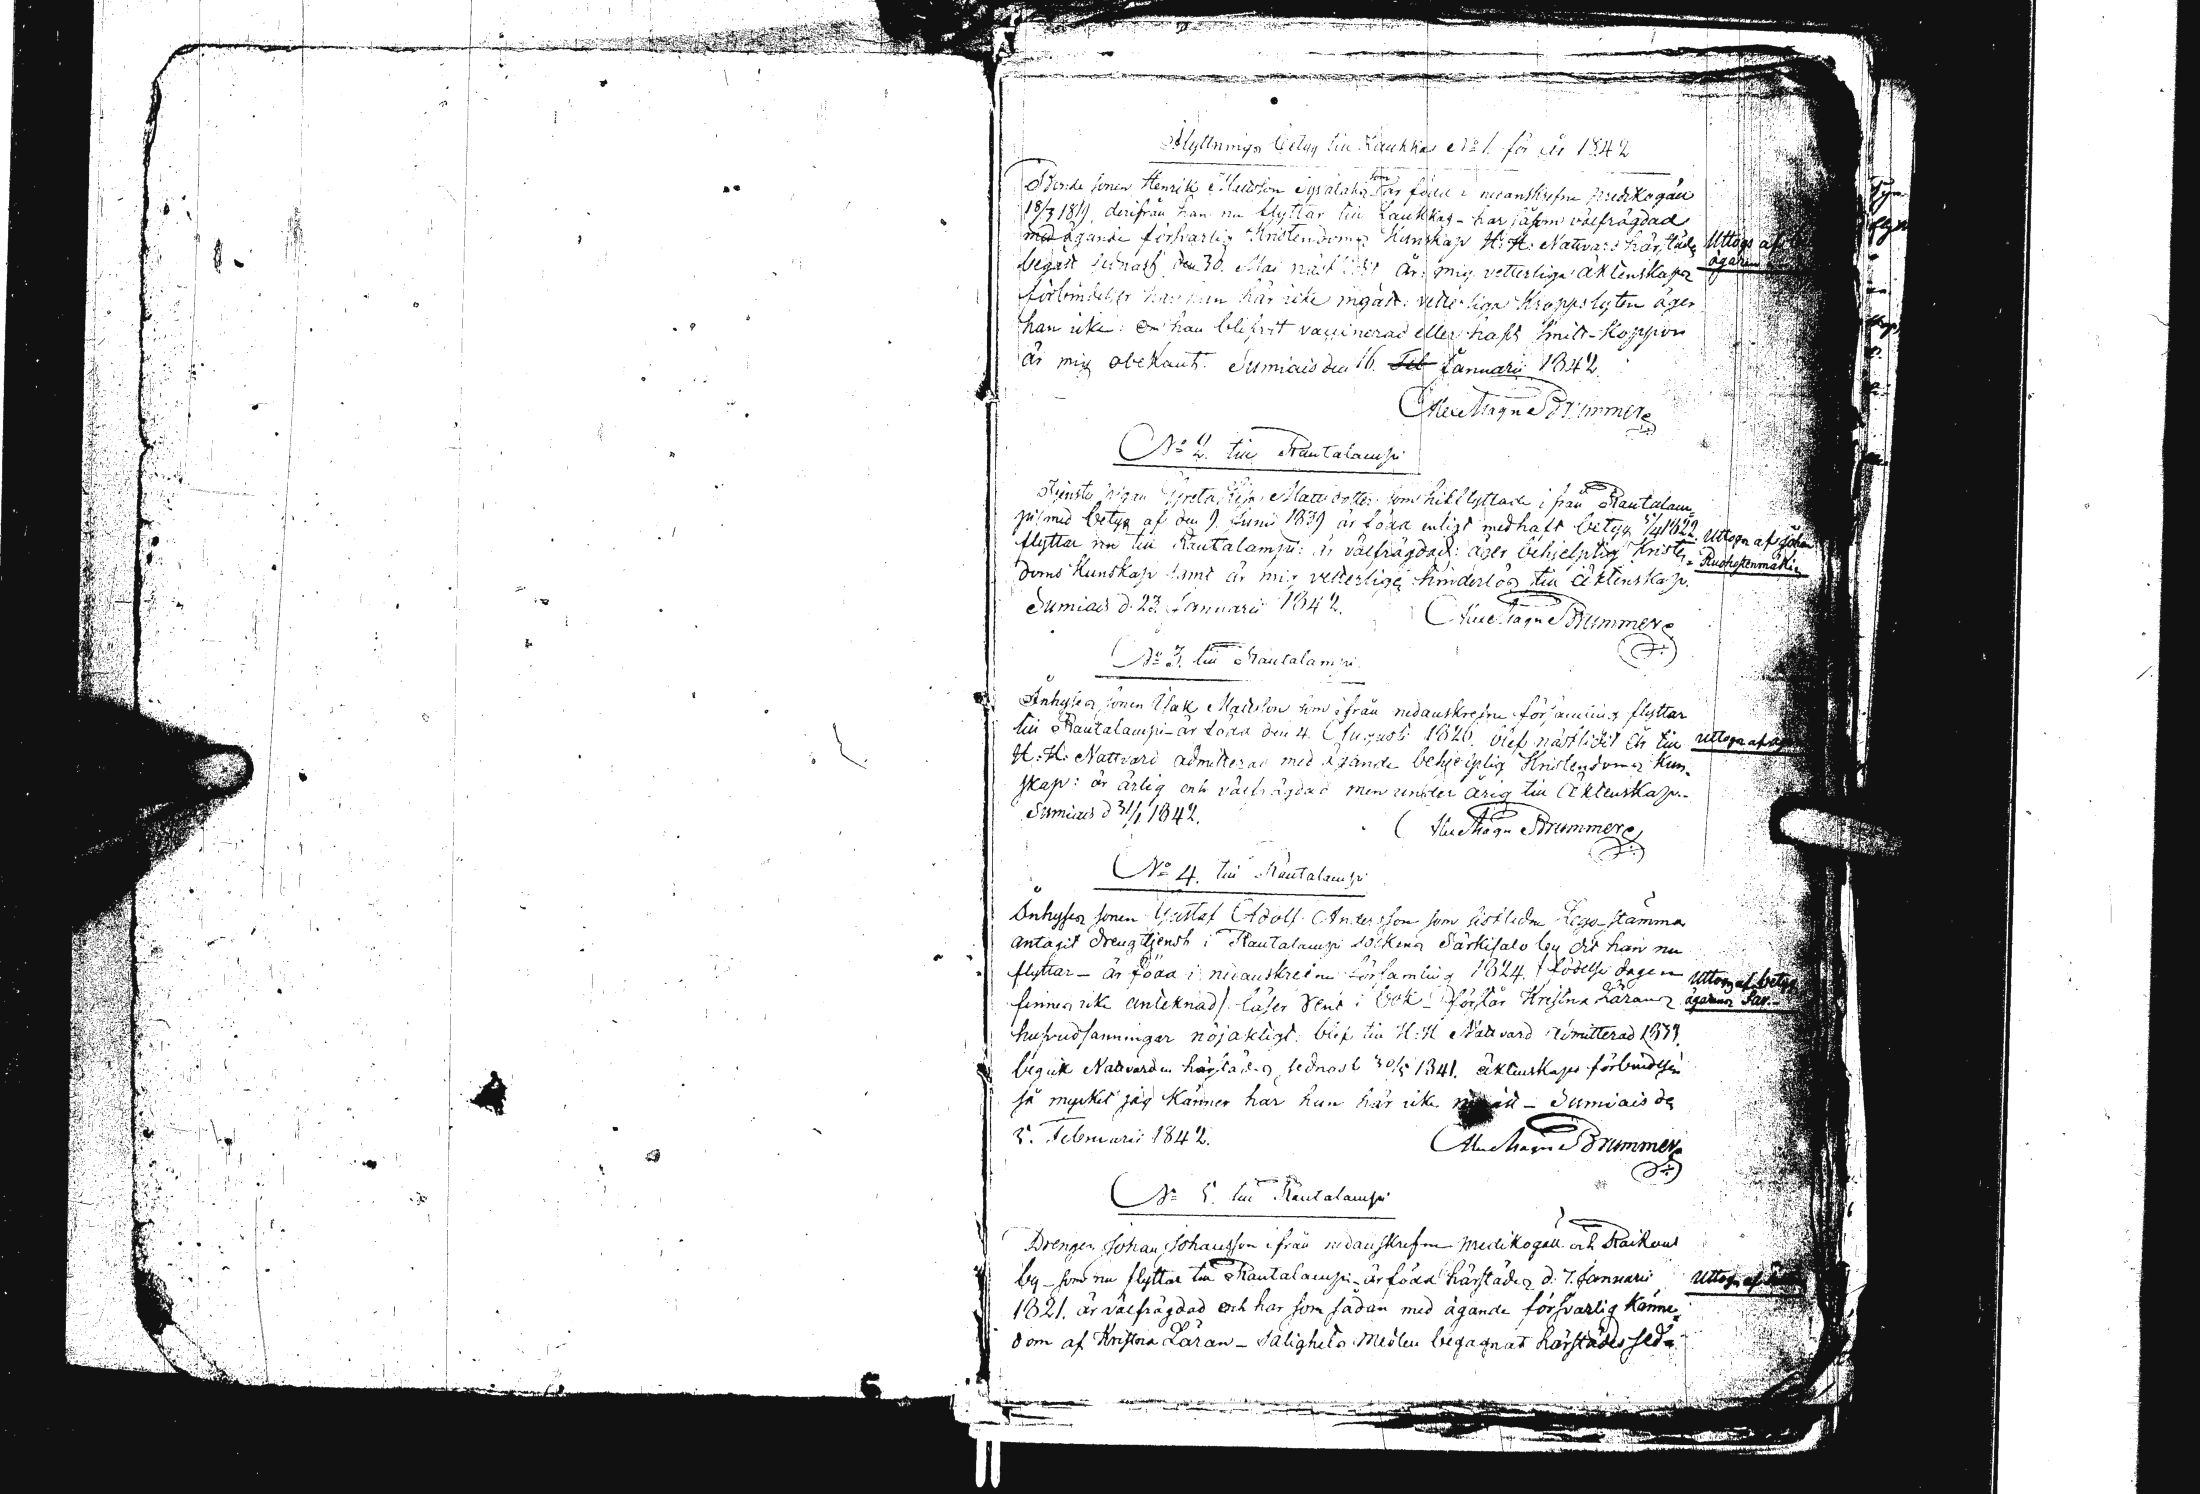 Flyttnings betyg till Laukkas No 1. för år 1842
Bonde sonen Henrik Mattsson som är född i nedanskrefne predikogäll
18/3 1819, derifrån han nu flyttar till Laukkas - har såsom välfrägdad
med ägande försvarlig Kristendoms Kunskap H: H: Nattvard härstädes
begått sednast den 30. Mai näst år: mig vetterliga äktenskaps
förbindelser har han här icke ingått: vetterliga Kroppslyten äger
han icke: om han blifvit vaccinerad eller haft Smitt-Koppor
är mig obekant. Sumiais den 16. Feb Januarii 1842.
Alex Magn Brummer
Uttogs af
ägaren
No 2. till Rautalampi
Tjenste pigan Greta Matts dotter som hitflyttade ifrån Rautalam-
pi med betyg af den 9. Junii 1839 är född enligt medhaft betyg 5/4 1822.
flyttar nu till Rautalampi: är välfrägdad: äger behjelplig Kristen-
doms Kunskap samt är mig vetterligen hinderlös till äktenskap.
Sumiais d. 23. Januarii 1842.
Alex Magn Brummer
Uttogs af Johan
No 3. till Rautalampi
Inhyses sonen Isak Mattsson som ifrån nedanskrefne församling flyttar
till Rautalampi - är född den 4. Augusti 1826. blef nästlidit år till
H: H: Nattvard admitterad med ägande behjelplig Kristendoms Kun-
skap: är ärlig och välfrägdad men under årig till äktenskap.-
Sumiais d 31/1 1842.
Alex Magn Brummer
Uttogs af
No 4. till Rautalampi
Inhyses sonen Gustaf Adolf Andersson som sistledne Lego-stämma
antagit drengtjenst i Rautalampi sockens Särkisalo by dit han nu
flyttar - är född i nedanskrefne församling 1824 / födelse dagen
finnes icke anteknad / läser rent i bok - förstår Kristna Lärans
hufvudsanningar nöjaktigt: blef till H: H Nattvard admitterad 1839.
begick Nattvarden härstädes sednast 30/5 1841. äktenskaps förbindelser
så mycket jag känner har han här icke ingått - Sumiais de
5. Februarii 1842.
Alex Magn Brummer
Uttogs af betygs
ägarens Far.
No 5. till Rautalampi
Drengen Johan Johansson ifrån nedanskrefne predikogäll och Raikus
by - som nu flyttar till Rautalampi - är född härstädes d. 7. Januarii
1821. är välfrägdad och har som sådan med ägande försvarlig Känne-
dom af Kristna Läran - Salighets Medlen begagnat härstädes sed-
Uttogs af